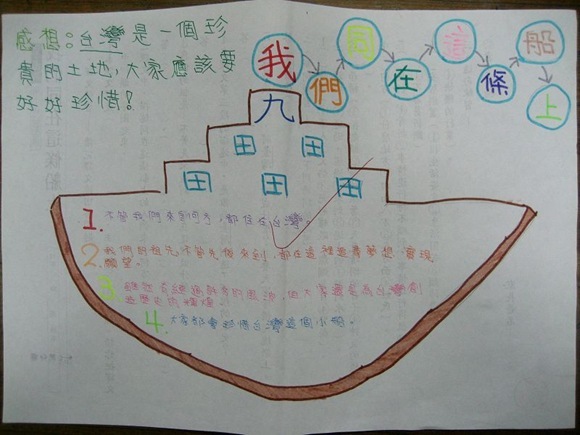 感想:台灣是一個珍
貴的土地,大家應該要
好好珍惜!
我們同在這條船上
九
1.不管我們來自何方,都住在台灣。
2.我們的祖先不管先後來到,都在這裡追尋夢想、實現
願望。
3.雖然 經過許多的風波,但大家還是為台灣創
造歷史的輝煌。
4.大家都要珍惜台灣這個小船。